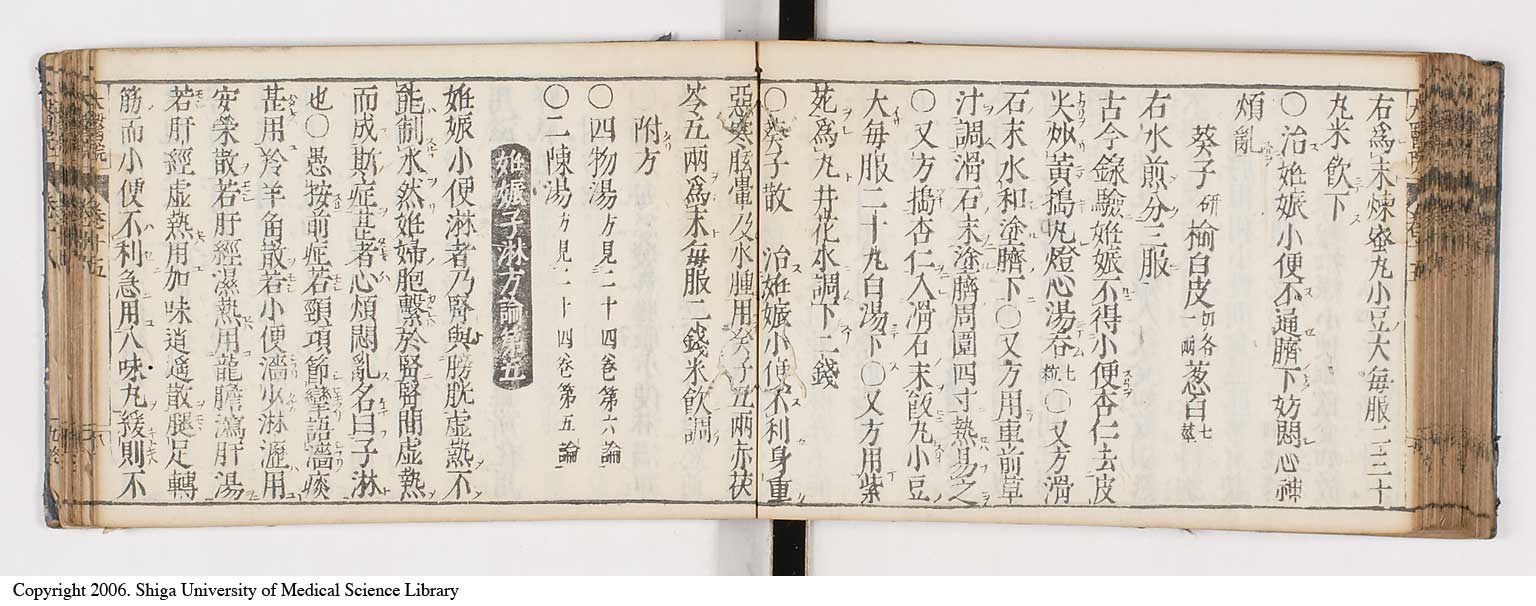 右為末煉蜜丸小豆大毎服二三十
丸米飲下
〇治妊娠小便不通臍下妨悶心神
煩亂
葵子研榆白皮一兩切各葱白七莖
右水煎分三服
古今錄驗妊娠不得小便杏仁去皮
尖炒黃搗丸燈心湯吞七粒〇又方滑
石末水和塗臍下〇又方用車前草
汁調滑石末塗臍周圍四寸熱易之
〇又方搗杏仁入滑石末飯丸小豆
大每服二十丸白湯下〇又方用紫
菀為丸井花水調下二錢
〇葵子散 治妊娠小便不利身重
惡寒眩暈及水腫用葵子五兩赤茯
苓五兩為末每服二錢米飲調
附方
〇四物湯方見二十四卷第六論
〇二陳湯方見二十四卷第五論
妊娠子淋方論第五
妊娠小便淋者乃腎與膀胱虛熱不
能制水然妊婦胞繫於腎腎間虛熱
而成斯症甚者心煩悶亂名曰子淋
也〇愚按前症若頸項筋攣語澁痰
甚用羚羊角散若小便澁少淋瀝用
安榮散若肝經濕熱用龍膽瀉肝湯
若肝經虛熱用加味逍遥散腿足轉
筋而小便不利急用八味丸緩則不
Copyright 2006. Shiga University of Medical Science Library